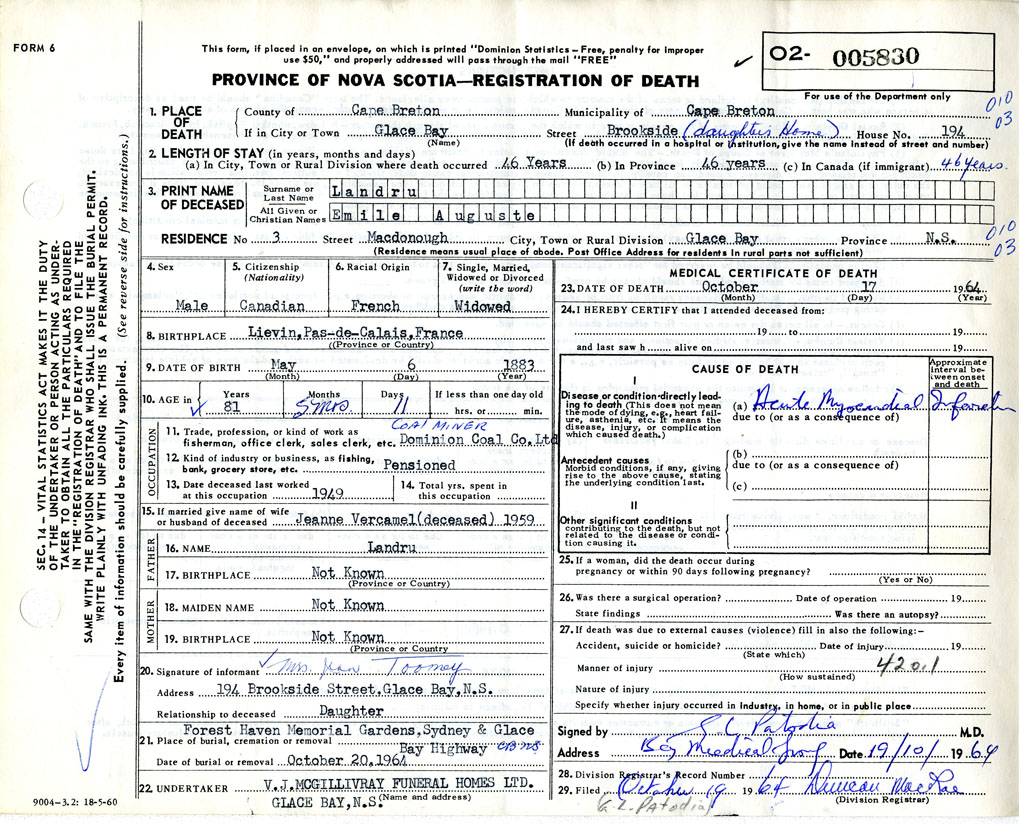 FORM 6
This form, if placed in an envelope, on which is printed "Dominion Statistics – Free, penalty for improper
use $50," and properly addressed will pass through the mail "FREE"
PROVINCE OF NOVA SCOTIA—REGISTRATION OF DEATH
O2- 005830
For use of the Department only
010
03
1. PLACE OF DEATH
County of Cape Breton Municipality of Cape Breton
If in City or Town Glace Bay Street Brookside (daughter's Home) House No. 194
(Name) (If death occurred in a hospital or institution, give the name instead of street and number)
2. LENGTH OF STAY (in years, months and days)
(a) In City, Town or Rural Division where death occurred 46 Years (b) In Province 46 years (c) In Canada (if immigrant) 46 years.
3. PRINT NAME OF DECEASED
Surname or Last Name Landru
All Given or Christian Names Emile Auguste
RESIDENCE No 3 Street Macdonough City, Town or Rural Division Glace Bay Province N.S.
(Residence means usual place of abode. Post Office Address for residents in rural parts not sufficient)
010
03
4. Sex
Male
5. Citizenship
(Nationality)
Canadian
6. Racial Origin
French
7. Single, Married,
Widowed or Divorced
(write the word)
Widowed
8. BIRTHPLACE Lievin, Pas-de-Calais, France
((Province or Country)
9. DATE OF BIRTH May 6 1883
(Month) (Day) (Year)
10. AGE in Years Months Days If less than one day old
81 5 mos 11 hrs. or min.
OCCUPATION
COAL MINER
11. Trade, profession, or kind of work as
fisherman, office clerk, sales clerk, etc. Dominion Coal Co. Ltd
12. Kind of industry or business, as fishing,
bank, grocery store, etc. Pensioned
13. Date deceased last worked
at this occupation 1949
14. Total yrs. spent in
this occupation
15. If married give name of wife
or husband of deceased Jeanne Vercamel(deceased) 1959
FATHER
16. NAME Landru
17. BIRTHPLACE Not Known
(Province or Country)
MOTHER
18. MAIDEN NAME Not Known
19. BIRTHPLACE Not Known
(Province or Country
20. Signature of informant Mrs. Jean Toomey
Address 194 Brookside Street, Glace Bay, N.S.
Relationship to deceased Daughter
Forest Haven Memorial Gardens, Sydney & Glace
21. Place of burial, cremation or removal Bay Highway
Date of burial or removal October 20, 1964
22. UNDERTAKER V.J. MCGILLIVRAY FUNERAL HOMES LTD.
GLACE BAY, N.S. (Name and address)
MEDICAL CERTIFICATE OF DEATH
23. DATE OF DEATH October 17 1964
(Month) (Day) (Year)
24. I HEREBY CERTIFY that I attended deceased from:
19 to 19
and last saw h alive on 19
CAUSE OF DEATH
Approximate
interval be-
tween onset
and death
I
Disease or condition directly lead-
ing to death (This does not mean
the mode of dying, e.g., heart fail-
ure, asthenia, etc. It means the
disease, injury, or complication
which caused death.)
(a) Acute Myocardial Infarction
due to (or as a consequence of)
Antecedent causes
Morbid conditions, if any, giving
rise to the above cause, stating
the underlying condition last.
(b)
due to (or as a consequence of)
(c)
II
Other significant conditions
contributing to the death, but not
related to the disease or condi-
tion causing it.
25. If a woman, did the death occur during
pregnancy or within 90 days following pregnancy?
(Yes or No)
26. Was there a surgical operation? Date of operation 19
State findings Was there an autopsy?
27. If death was due to external causes (violence) fill in also the following:–
Accident, suicide or homicide? Date of injury 19
(State which)
Manner of injury 420.1
(How sustained)
Nature of injury
Specify whether injury occurred in industry, in home, or in public place
Signed by G. L. Patodia M.D.
Address Bay Medical Group Date 19/10/ 1964
28. Division Registrar's Record Number
29. Filed October 19 1964 Duncan MacRae
(Division Registrar)
(G.L. PATODIA)
SEC. 14 – VITAL STATISTICS ACT MAKES IT THE DUTY
OF THE UNDERTAKER OR PERSON ACTING AS UNDER-
TAKER TO OBTAIN ALL THE PARTICULARS REQUIRED
IN THE "REGISTRATION OF DEATH" AND TO FILE THE
SAME WITH THE DIVISION REGISTRAR WHO SHALL ISSUE THE BURIAL PERMIT.
WRITE PLAINLY WITH UNFADING INK. THIS IS A PERMANENT RECORD.
Every item of information should be carefully supplied. (See reverse side for instructions.)
9004-3.2: 18-5-60